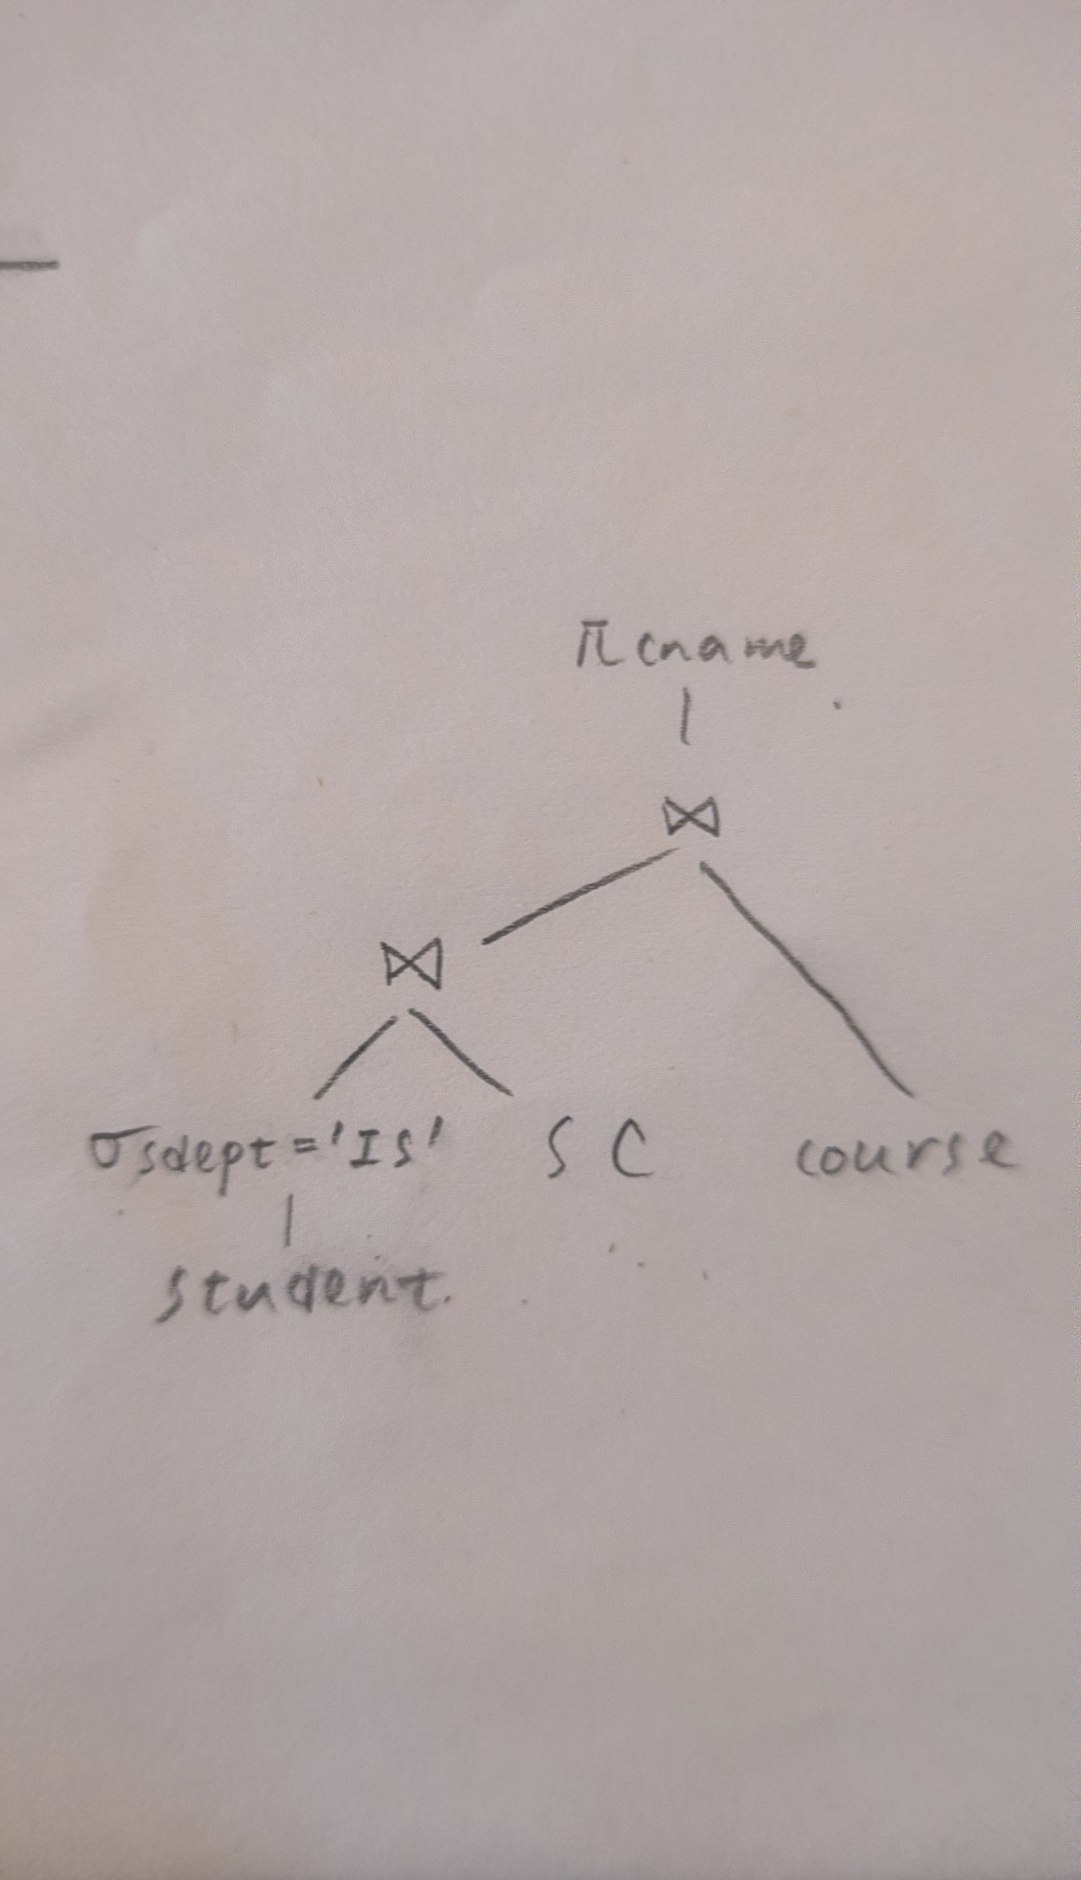 π cname
⋈
⋈
σ sdept = 'IS' SC course
student.